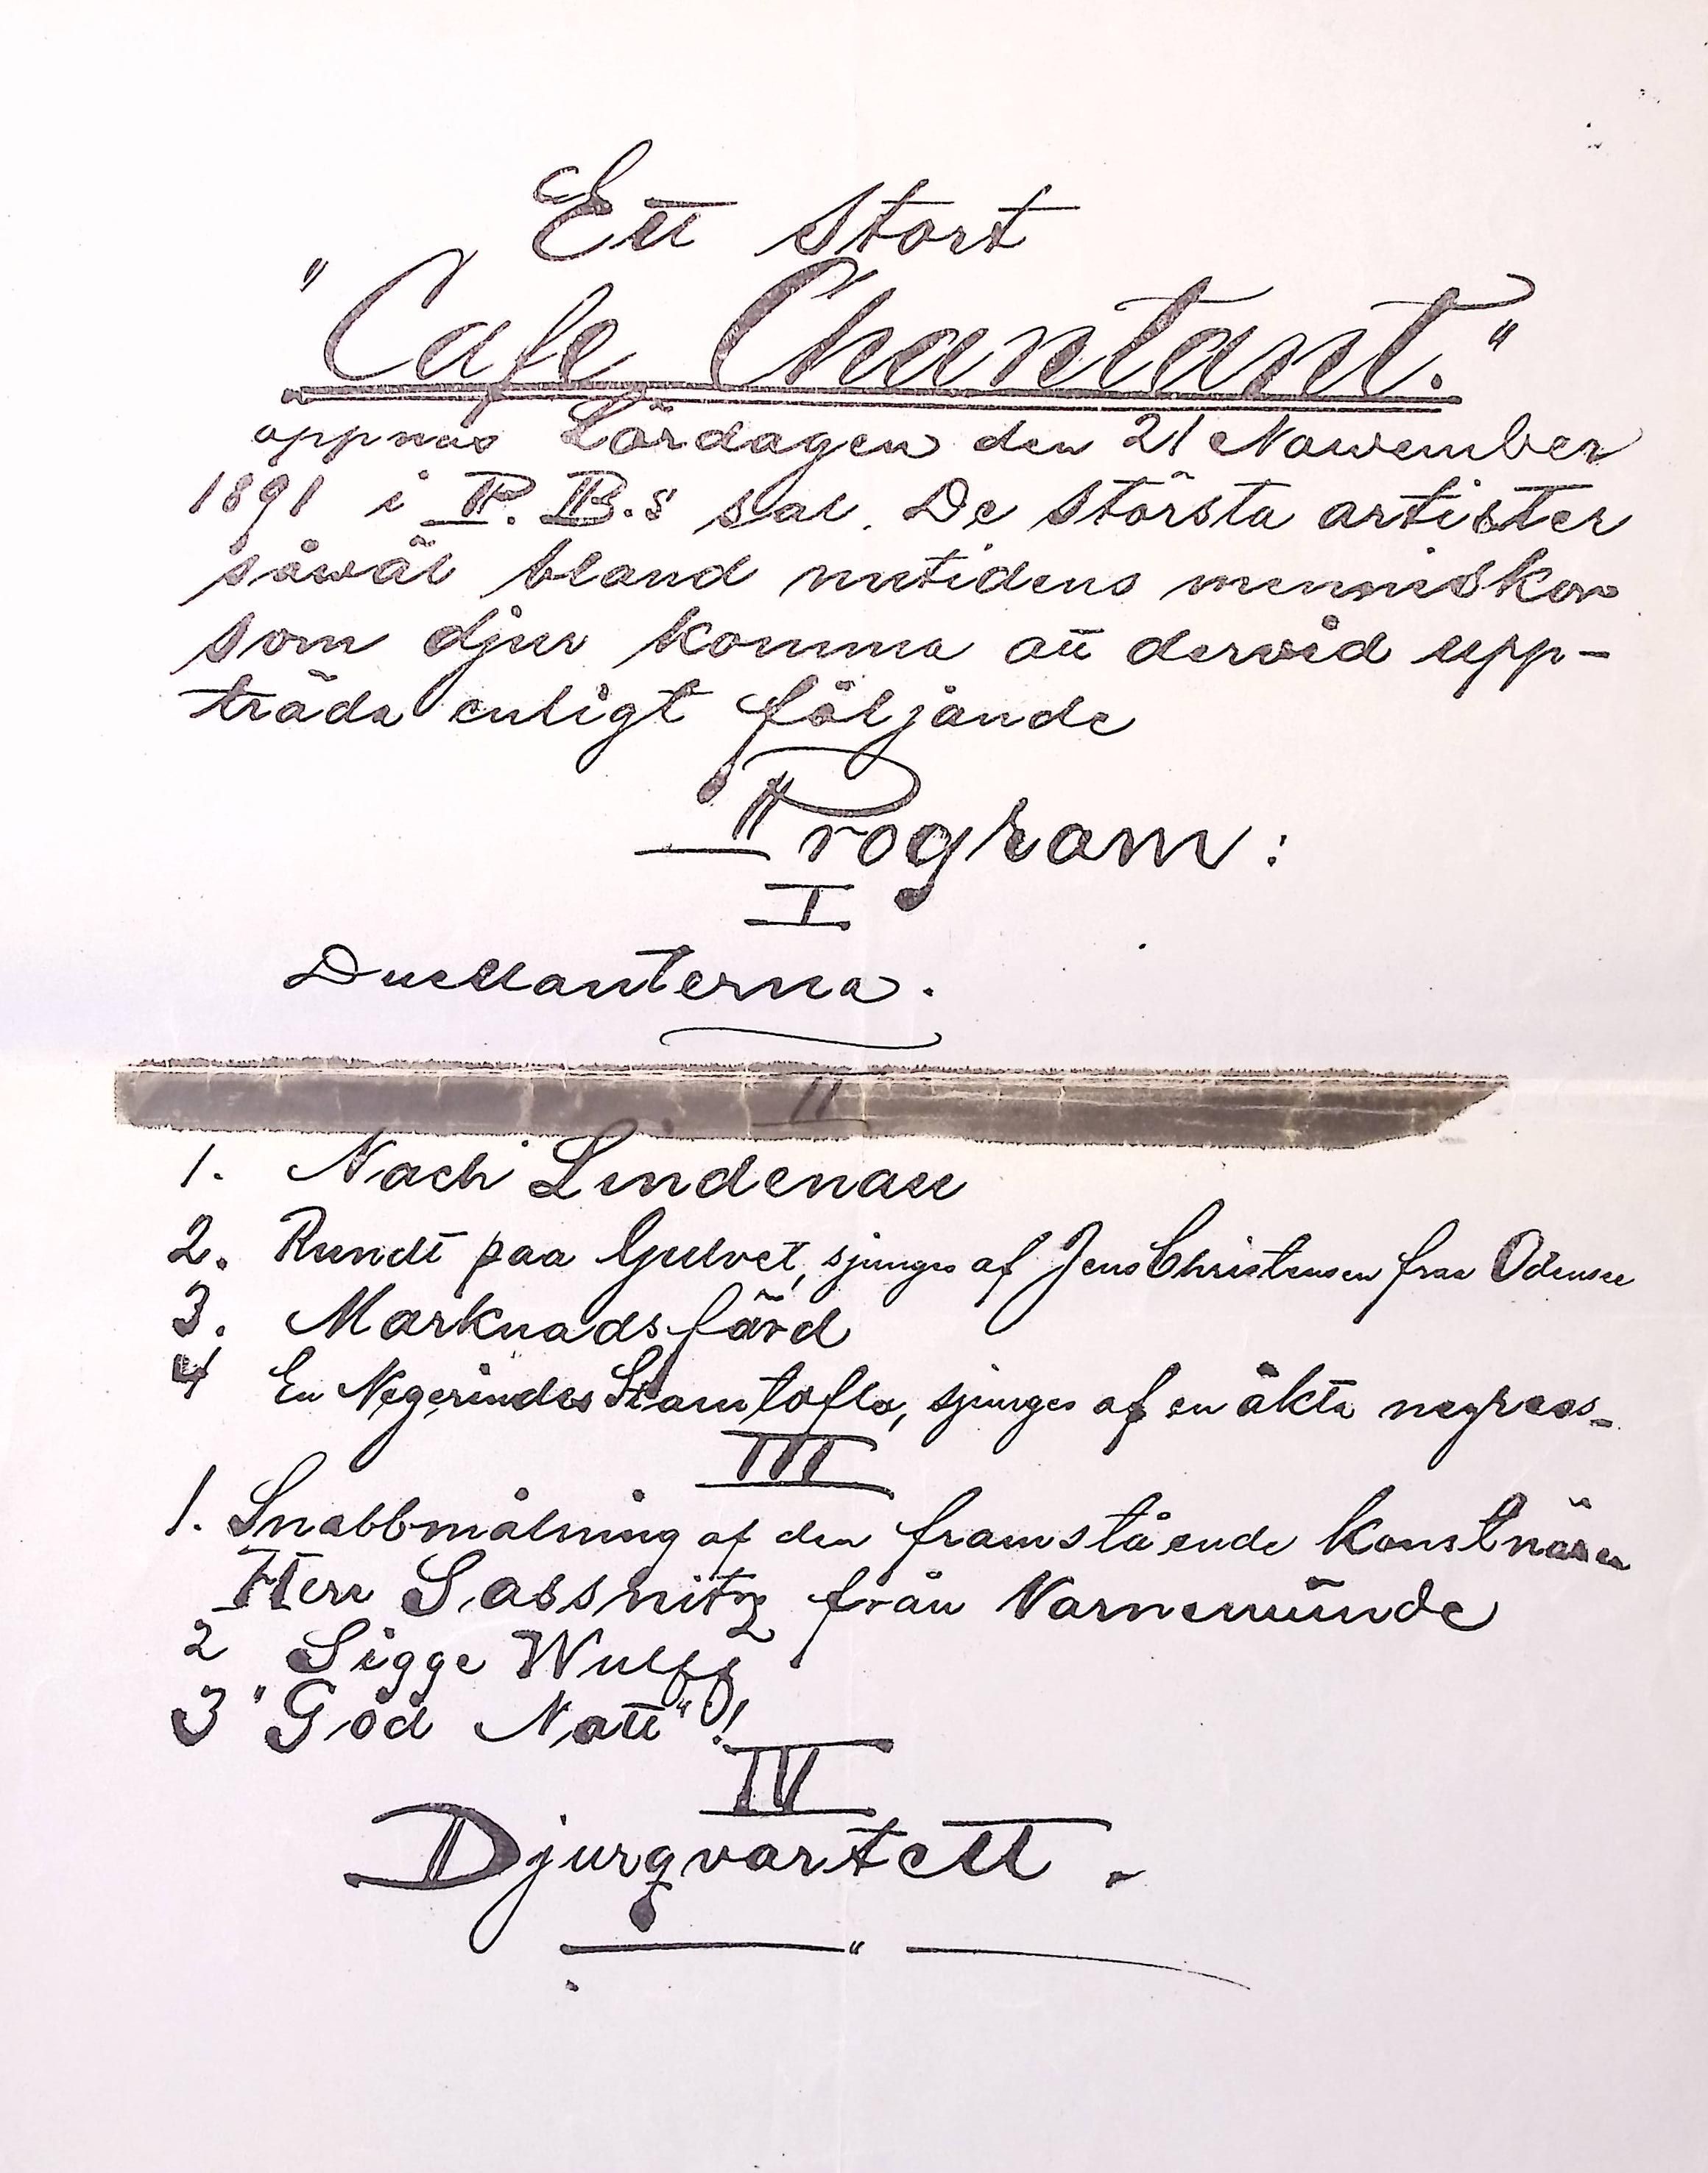 Ett stort
"Cafe Chantant."
öppnas Lördagen den 21 November
1891 i P. B.s sal. De största artister
såwäl bland nutidens menniskor
som djur komma att dervid upp-
träda enligt följande
Program:
I
Duellanterna.
II
1. Nach Lindenau
2. Rundt paa Gulvet, sjunges af Jens Christensen fraa Odensee
3. Marknadsfärd
4 En Negerindes Stamtofla, sjunges af en äkta negress.
III
1. Snabbmålning af den framstående konstnären
Herr Sassnitz från Varnemünde
2 Sigge Wulff
3 "God Natt"!
IV
Djurqvartett.